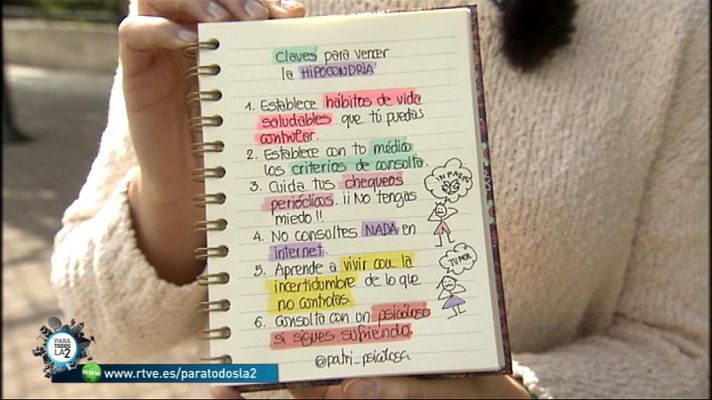 Claves para vencer
la HIPOCONDRÍA
1. Establece hábitos de vida
saludables que tú puedas
controlar.
2. Establece con tu médico
los criterios de consulta.
3. Cuida tus chequeos
periódicos. ¡¡No tengas
miedo!!
4. No consultes NADA en
internet.
5. Aprende a vivir con la
incertidumbre de lo que
no controlas.
6. Consulta con un psicólogo
si sigues sufriendo.
@patri_psicologa
TUMOR
PARA
TODOS
LA 2
www.rtve.es/paratodosla2